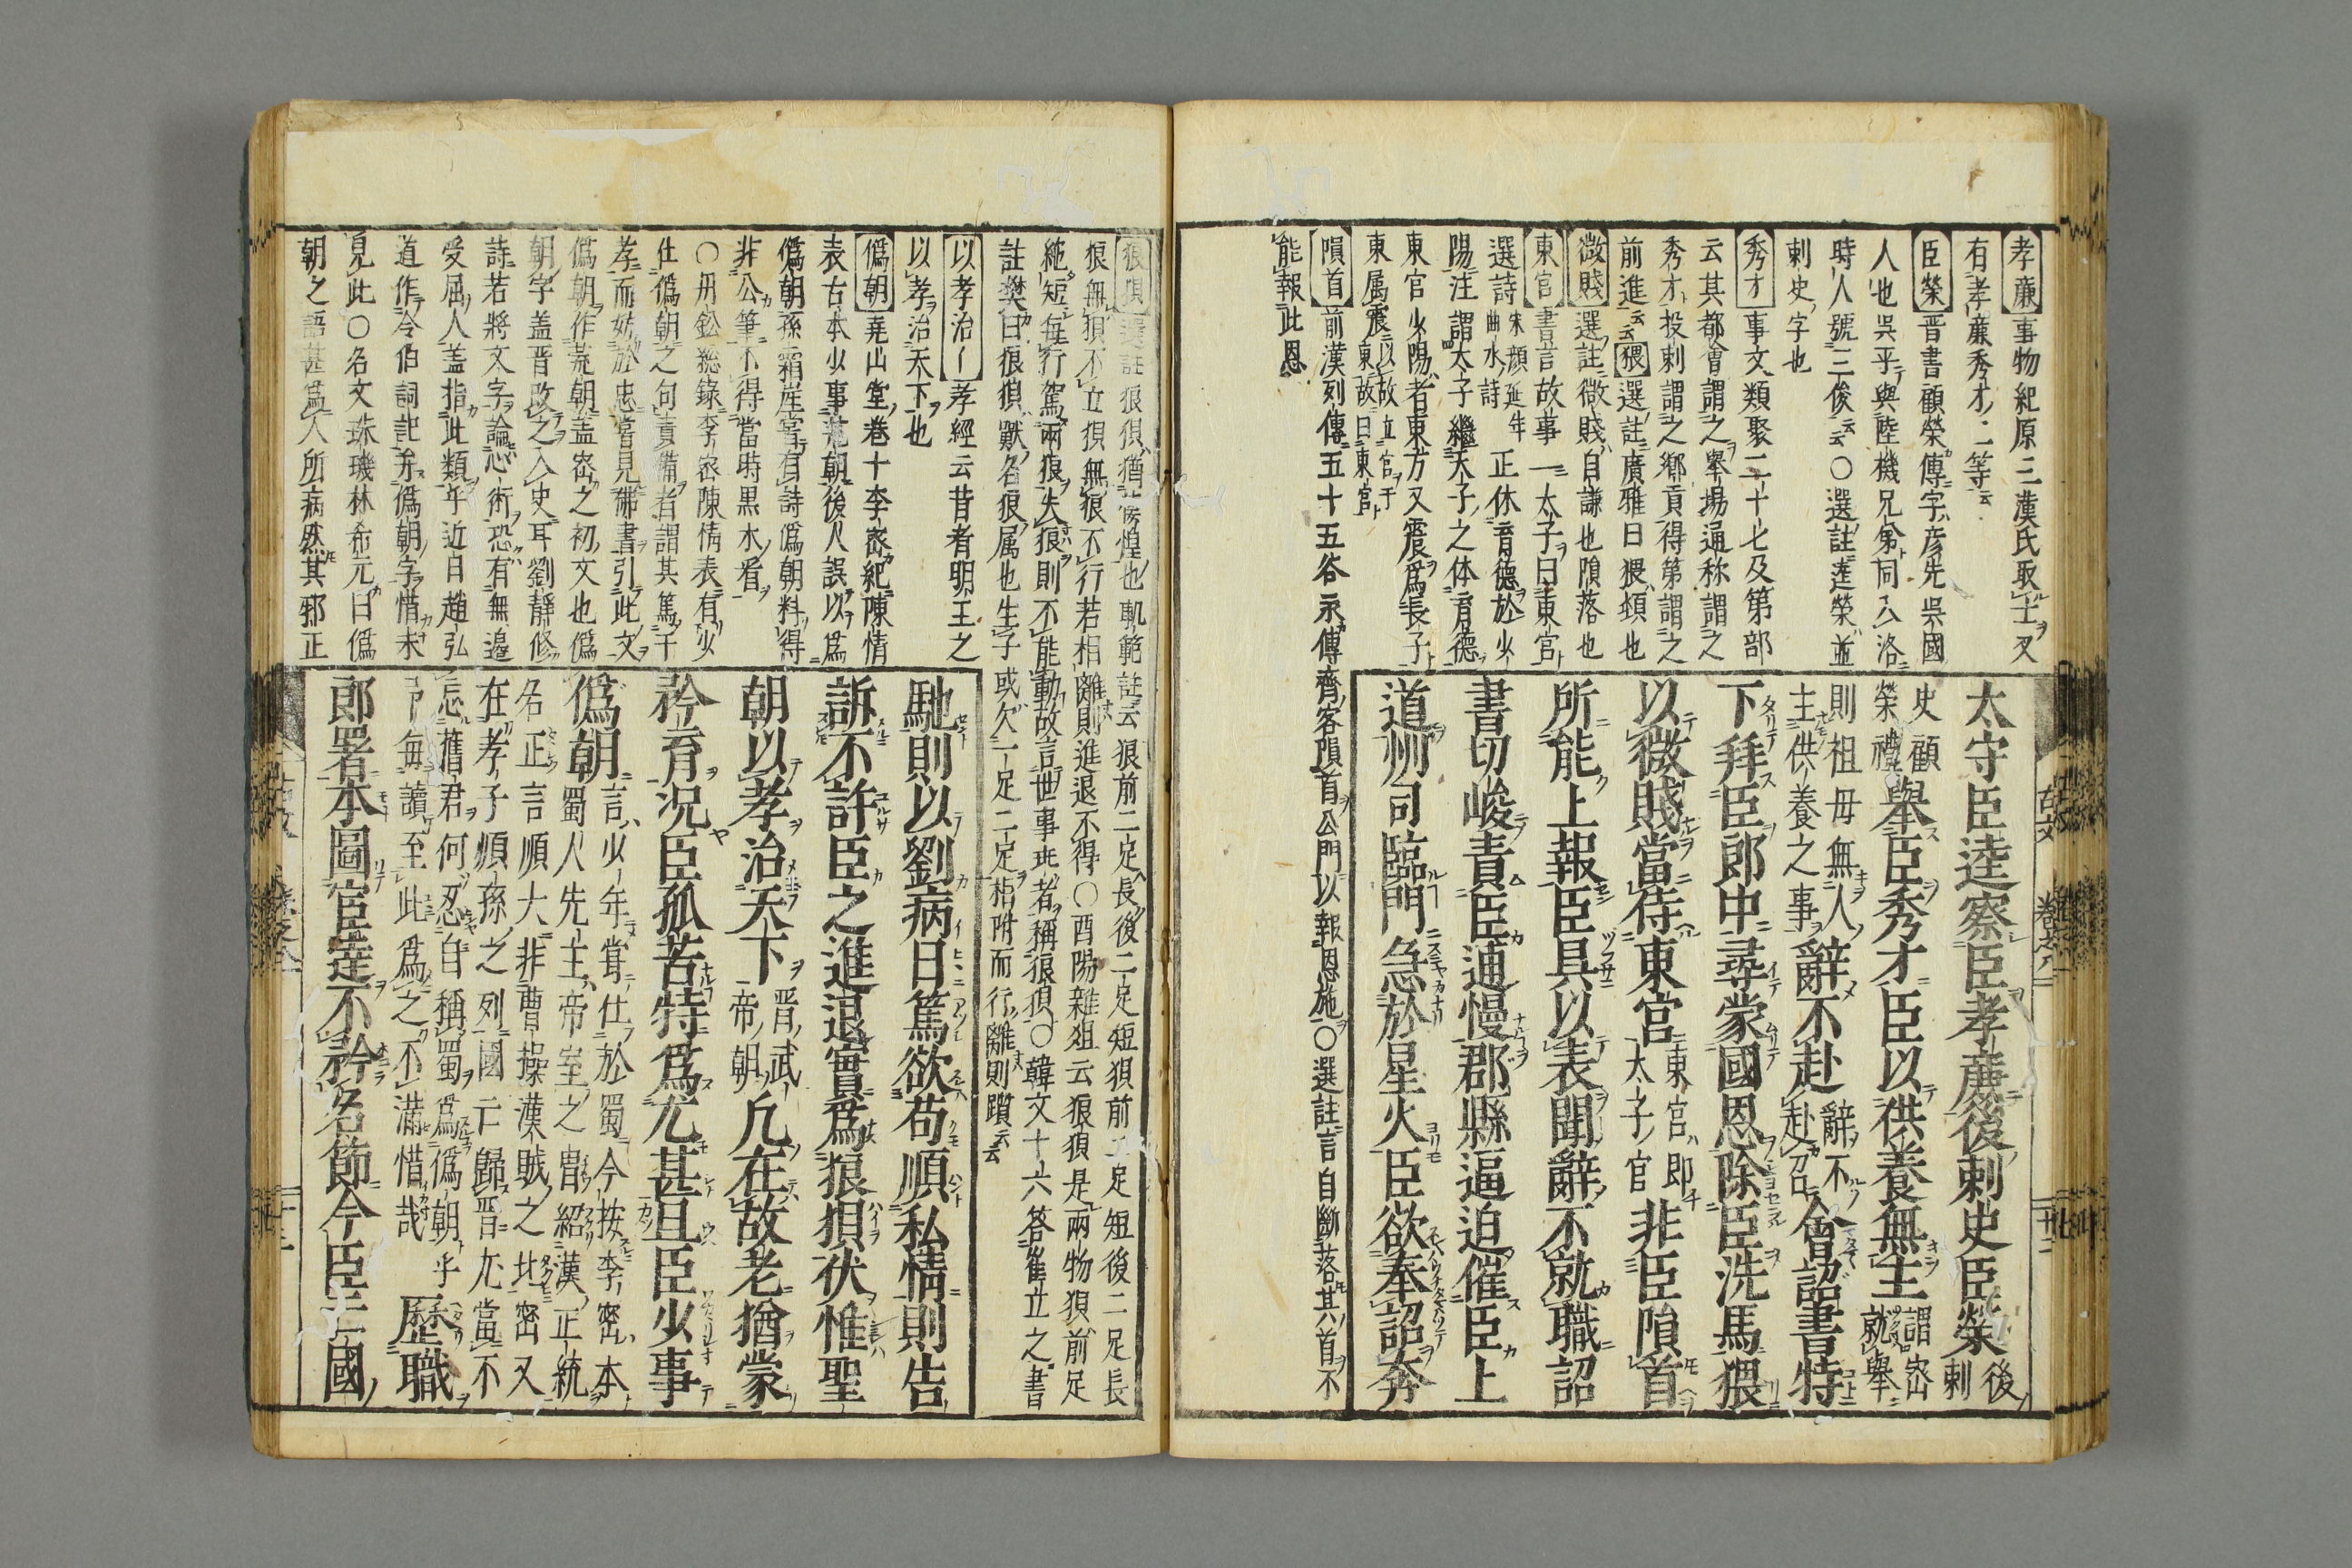 孝廉 事物紀原三漢氏取士又
有孝廉秀才二等云
臣榮 晋書顧榮傳字彦先吳國
人也吳平與陸機兄弟同入洛
時人號三俊云云○選註逵榮並
刺史字也
秀才 事文類聚二十七及第部
云其都會謂之舉場通称謂之
秀才投刺謂之鄉貢得第謂之
前進云云 猥 選註廣雅曰猥頓也
微賤 選註微賤自謙也隕落也
東官 書言故事一太子曰東官
選詩 宋顔延年曲水詩 正休育德於少
陽注謂太子繼天子之体育德
東官少陽者東方又震爲長子
東属震以故立官于東故曰東官
隕首 前漢列傳五十五谷永傳齊客隕首公門以報恩施○選註言自斷落其首不
能報此恩
太守臣逵察臣孝廉後刺史臣榮 後刺
史顧榮禮 舉臣秀才臣以供養無主 謂密就舉
則祖母無人主供養之事 辭不赴 辭不赴召 會詔書特
下拜臣郎中尋蒙國恩除臣洗馬猥
以微賤當待東官 東宮即太子官 非臣隕首
所能上報臣具以表聞辭不就職詔
書切峻責臣逋慢郡縣逼迫催臣上
道州司臨門急於星火臣欲奉詔奔
古文 卷之八 廿二
狼狽 選註狼狽猶
也軌範註云狼前二足長後二足短狽前二足短後二足長
狼無狽不立狽無狼不行若相離則進退不得○酉陽雜俎云狼狽是兩物狽前足
絶短每行駕兩狼失狼則不能動故言世事乖者稱狼狽○韓文十六答崔立之書
註樊曰狼狽獸名狼属也生子或欠一足二足相附而行離則躓云云
以孝治〡 孝經云昔者明王之
以孝治天下也
僞朝 堯山堂卷十李密紀陳情
表古本少事荒朝後人誤以爲
僞朝孫霜崖嘗有詩僞朝料得
非公筆不得當時黒水看
○丹鉛總錄李密陳情表有少
仕僞朝之句責備者謂其篤于
孝而妨於忠嘗見佛書引此文
僞朝作荒朝盖密之初文也僞
朝字盖晋改之入史耳劉靜修
詩若將文字論心術恐有無邉
受屈人盖指此類乎近日趙弘
道作令伯詞記弁僞朝字惜未
見此○名文珠璣林希元曰僞
朝之語甚爲人所病然其邪正
馳則以劉病日篤欲苟順私情則告
訴不許臣之進退實爲狼狽伏惟聖
朝以孝治天下 晋武帝朝 凡在故老猶蒙
矜育况臣孤苦特爲尤甚且臣少事
僞朝 言少年嘗仕於蜀今按李密本蜀人先主帝室之冑紹漢正統
名正言順大非曹操漢賊之比密又在孝子順孫之列國亡歸晋尤當不
忘舊君何忍自稱蜀爲僞朝乎予每讀至此爲之不滿惜哉 歷職
郎署本圖宦達不矜名節今臣亡國